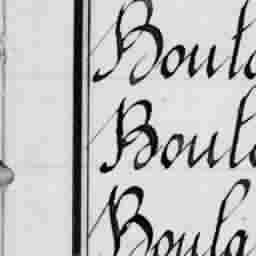 Boula
Boula
Boula